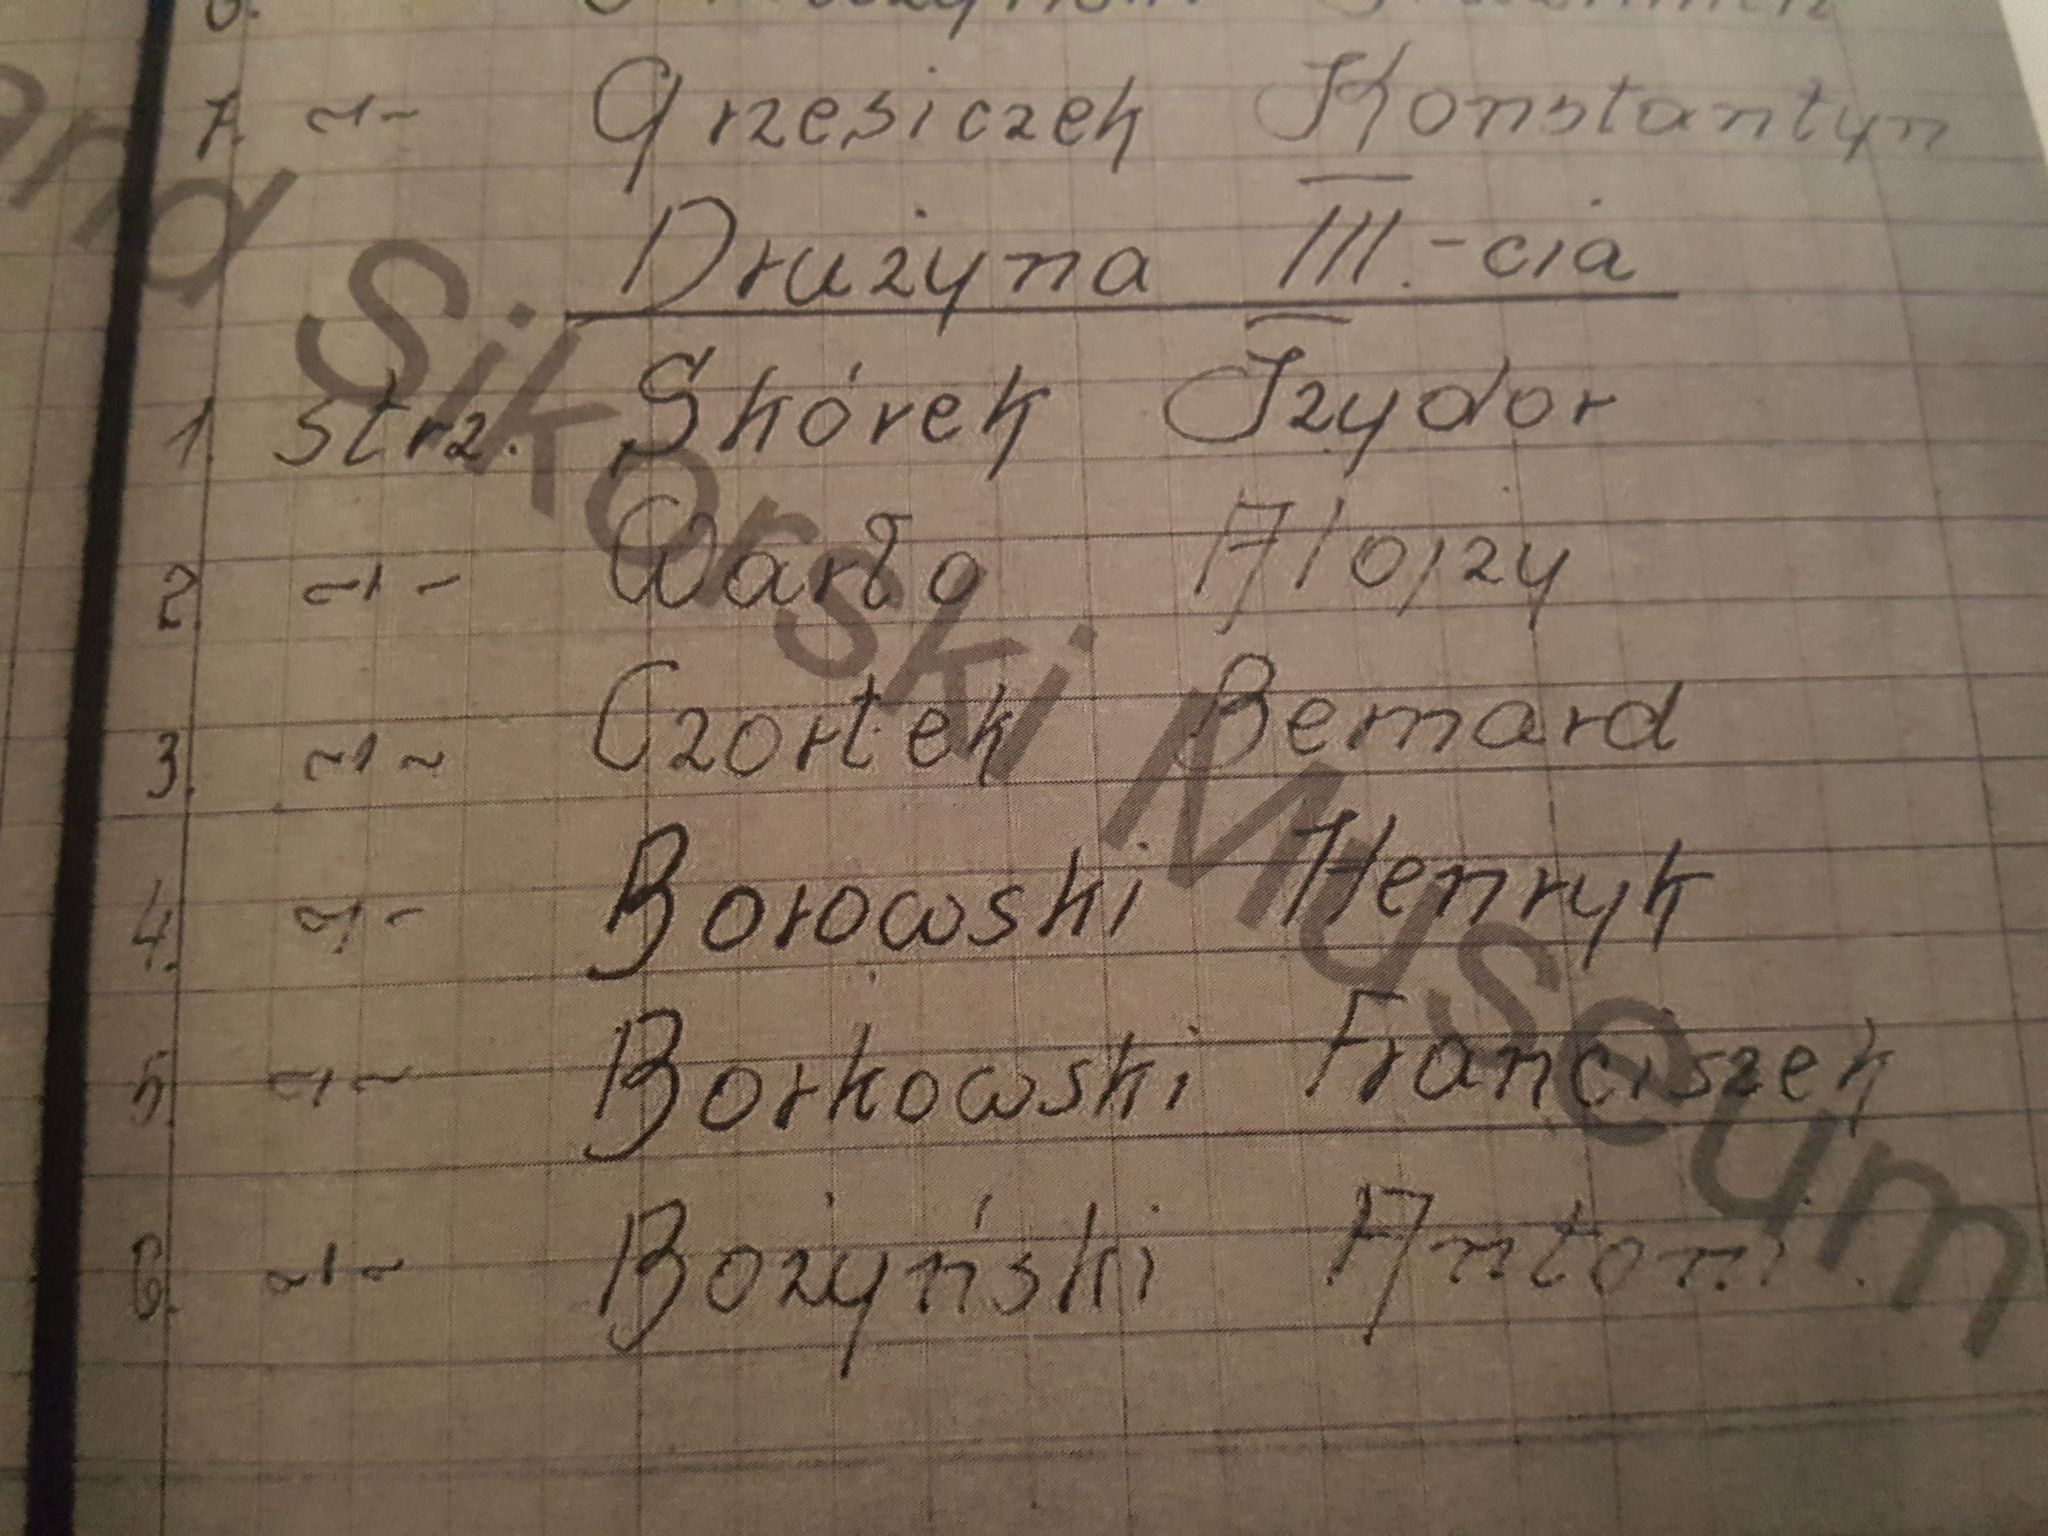 6.
7. -"- Grzesiczek Konstantyn
Drużyna III.-cia
1. strz. Skórek Izydor
2. -"- Warło Alojzy
3. -"- Czortek Bernard
4. -"- Borowski Henryk
5. -"- Borkowski Franciszek
6. -"- Bożyński Antoni.
and Sikorski Museum